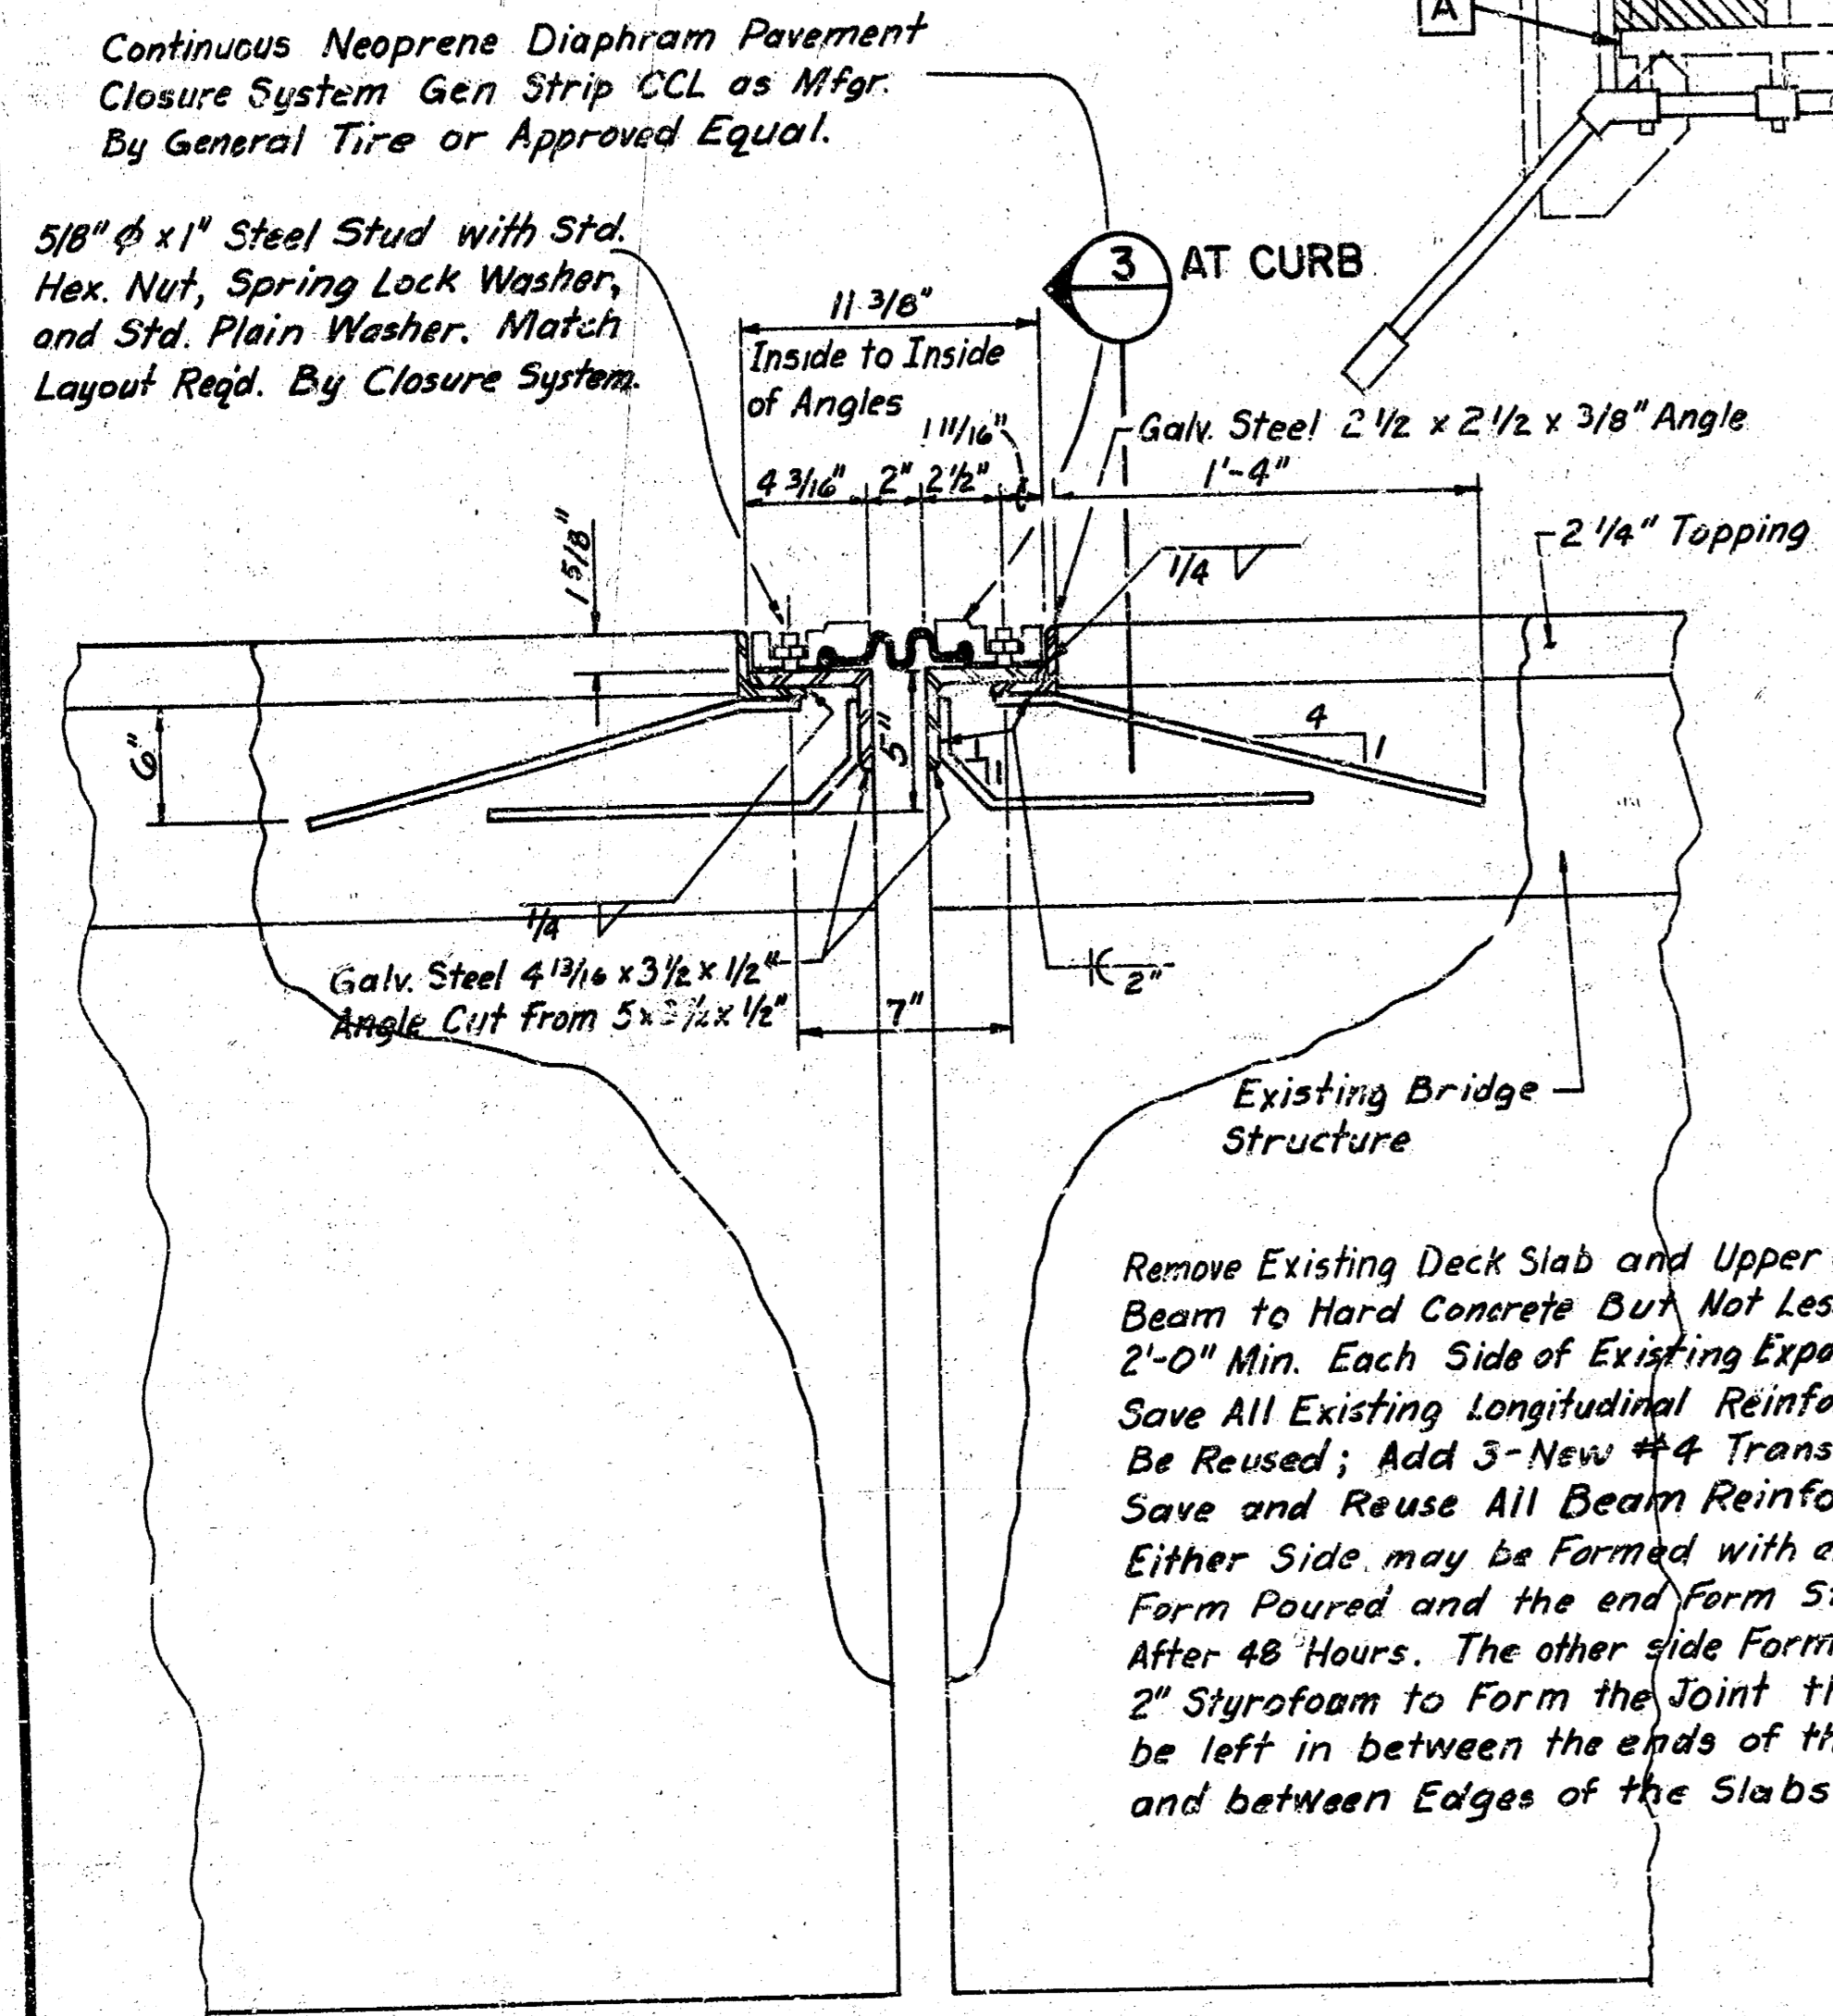 Continuous Neoprene Diaphram Pavement
Closure System Gen Strip CCL as Mfgr.
By General Tire or Approved Equal.
A
5/8" φ x 1" Steel Stud with Std.
Hex. Nut, Spring Lock Washer,
and Std. Plain Washer. Match
Layout Req'd. By Closure System.
3 AT CURB
11 3/8"
Inside to Inside
of Angles
1 11/16"
Galv. Steel 2 1/2 x 2 1/2 x 3/8" Angle
4 3/16" 2" 2 1/2"
1'-4"
2 1/4" Topping
1 5/8"
1/4
6"
5"
4
1
1
1
1/4
Galv. Steel 4 13/16 x 3 1/2 x 1/2"
Angle Cut from 5 x 3 1/2 x 1/2"
2"
7"
Existing Bridge
Structure
Remove Existing Deck Slab and Upper
Beam to Hard Concrete But Not Les
2'-0" Min. Each Side of Existing Expa
Save All Existing Longitudinal Reinfo
Be Reused; Add 3-New #4 Trans
Save and Reuse All Beam Reinfo
Either Side may be Formed with a
Form Poured and the end Form St
After 48 Hours. The other side Form
2" Styrofoam to Form the Joint th
be left in between the ends of th
and between Edges of the Slabs